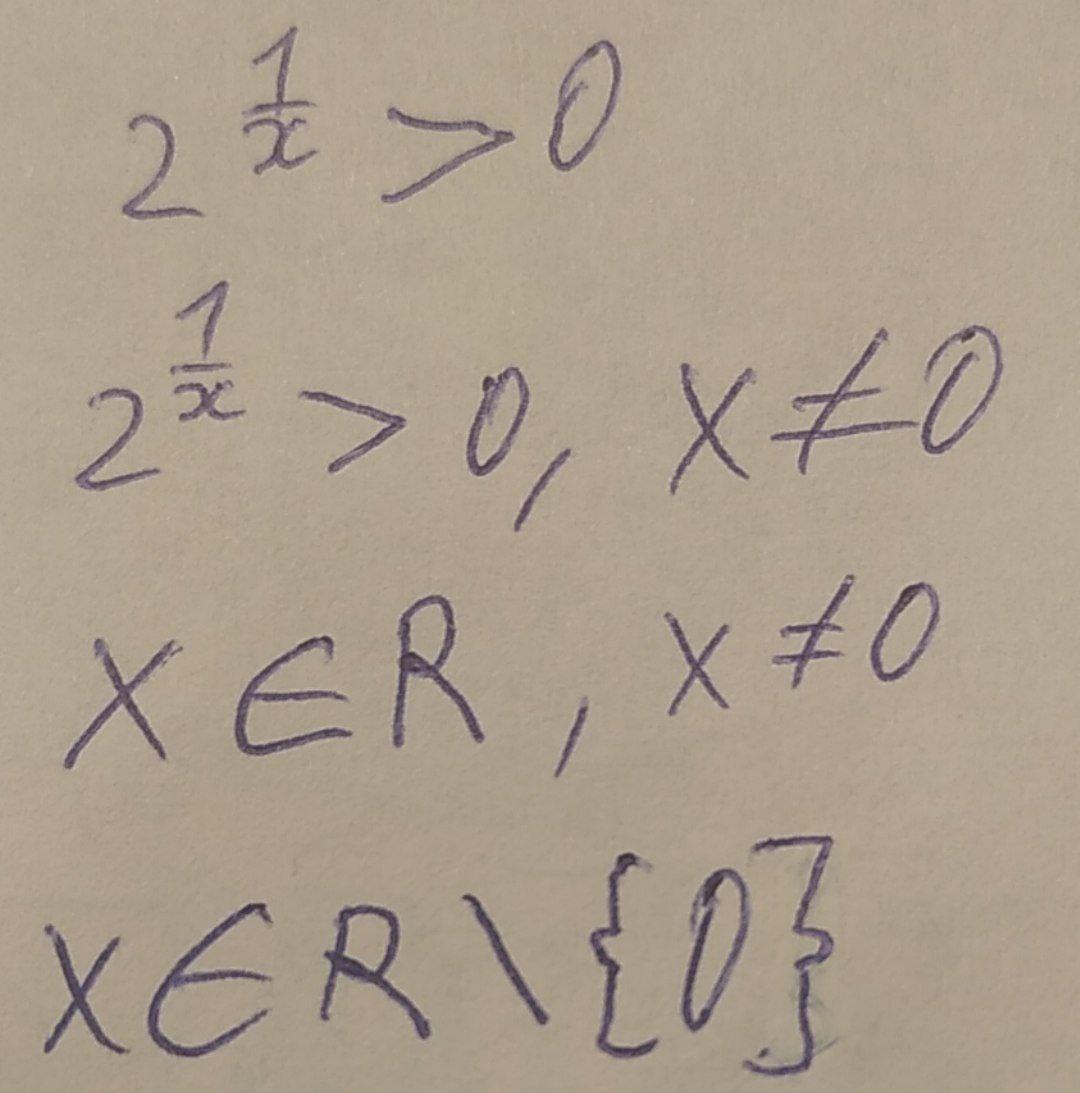 2^{\frac{1}{x}} > 0
2^{\frac{1}{x}} > 0, x ≠ 0
x ∈ R, x ≠ 0
x ∈ R \ {0}